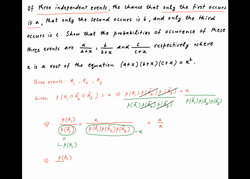 Of three independent events, the chance that only the first occurs
is a, that only the second occurs is b, and only the third
occurs is c. Show that the probabilities of occurence of these
three events are a/(a+x), b/(b+x) and c/(c+x) respectively where
x is a root of the equation (a+x)(b+x)(c+x) = x².
Three events: A₁, A₂, A₃
Given P(A₁ ∩ A̅₂ ∩ A̅₃) = a ⇒
P(A₁) P(A̅₂) P(A̅₃)
= a
⇒ P(A₁)/P(A̅₁) = a/(P(A̅₁)P(A̅₂)P(A̅₃)) → x = a/x
1-P(A₁)
⇒ P(A₁)